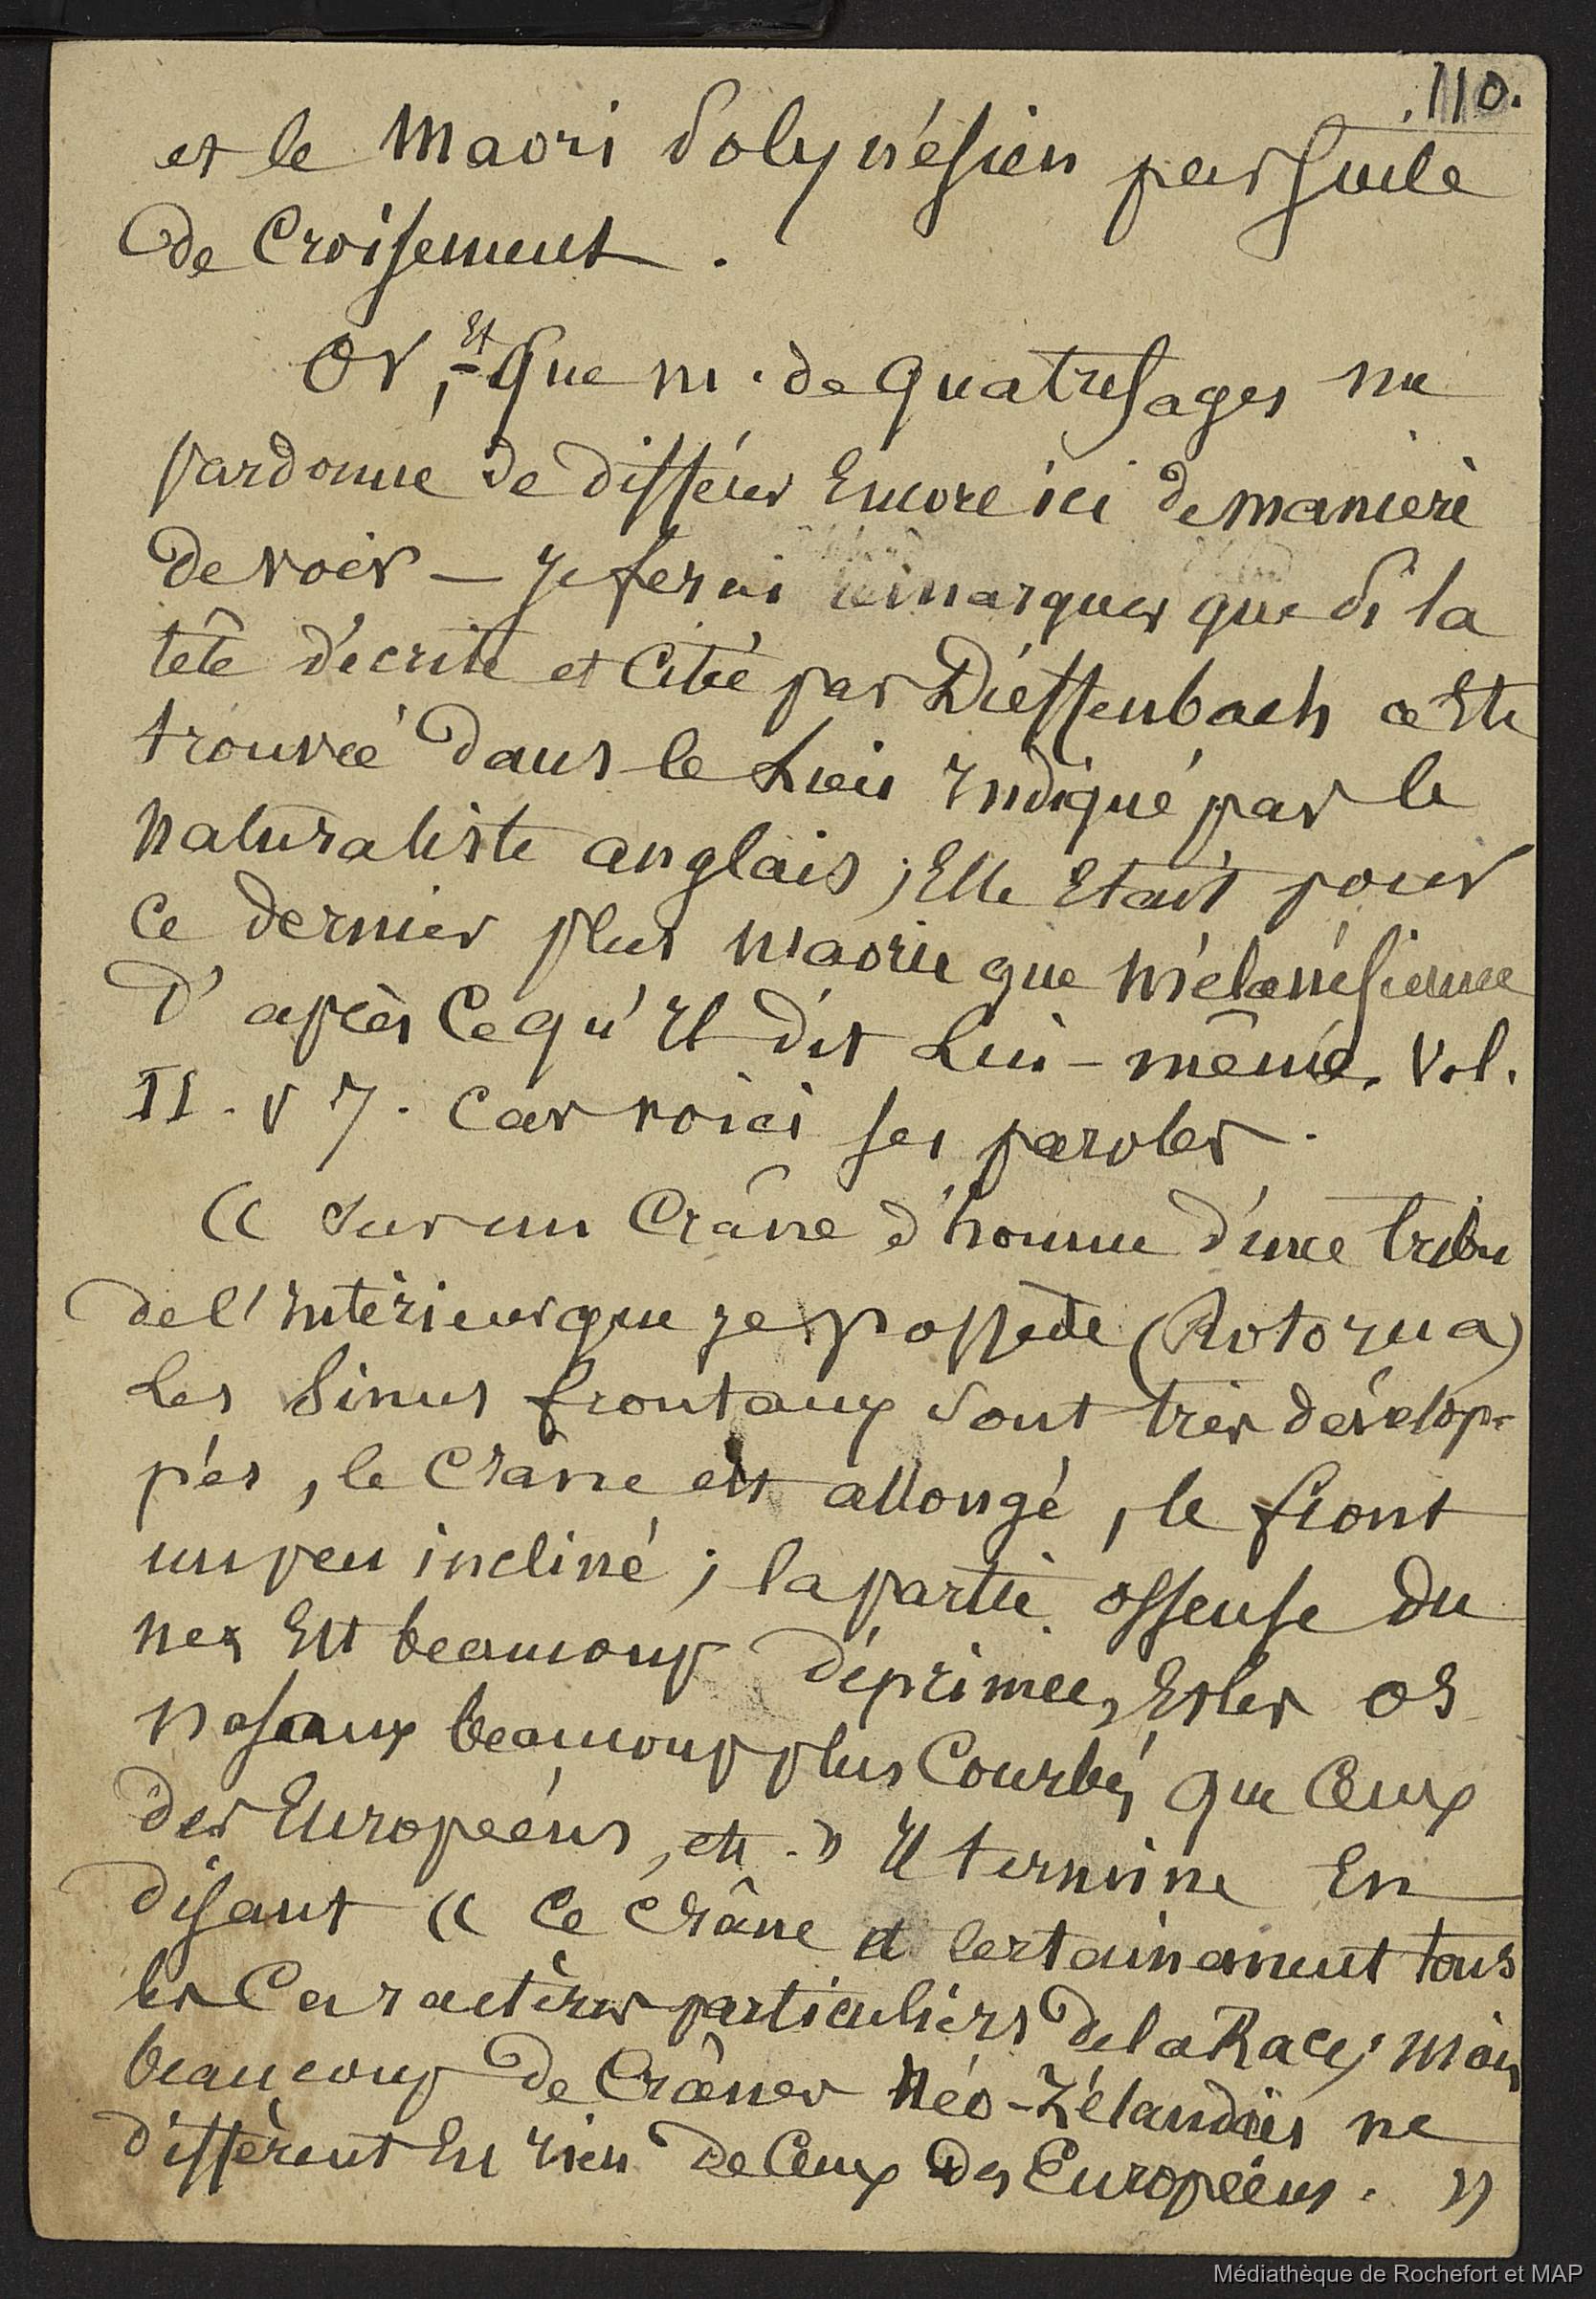 .110.
et le Maori Polynésien par suite
de Croisement.
Or, - Et que M. de Quatrefages me
pardonne de différer Encore ici de manière
de voir — Je ferai remarquer que si la
tête décrite et citée par Dieffenbach a Eté
trouvée dans le Lieu Indiqué par le
naturaliste anglais, Elle Etait pour
ce dernier plus maorie que mélanésienne
D'après Ce qu'Il dit Lui-même. Vol.
II. p 7. Car voici ses paroles.
« Sur un Crâne d'homme d'une tribu
de l'Intérieur que je possède (Rotorua)
Les Sinus frontaux sont très dévelop-
pés, le Crâne est allongé, le front
un peu incliné ; la partie osseuse du
nez Est beaucoup déprimée, Et les os
nasaux beaucoup plus Courbés que Ceux
des Européens, etc. » Il termine En
disant « Ce Crâne a certainement tous
les Caractères particuliers de la Race; mais
beaucoup de Crânes Néo-Zélandais ne
diffèrent En rien de Ceux des Européens. »
Médiathèque de Rochefort et MAP